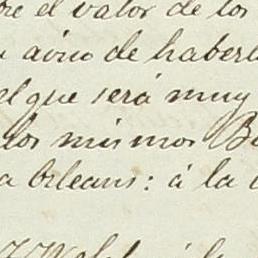 re el valor de los
aviso de haberl
el que será muy
los mismos B
a Orleans: á la